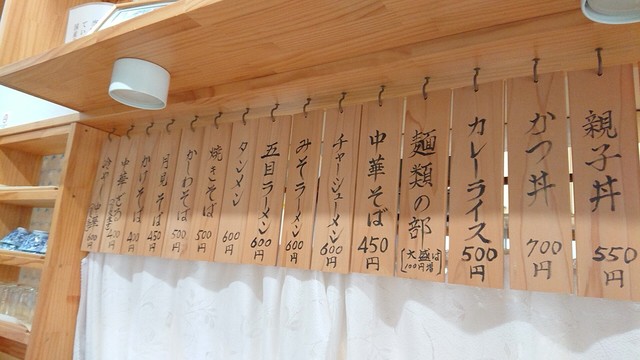 親子丼 550円
かつ丼 700円
カレーライス 500円
麺類の部 (大盛は100円増
中華そば 450円
チャーシューメン 600円
みそラーメン 600円
五目ラーメン 600
タンメン 600
焼きそば 500
かしわそば 500
月見そば 450
かけそば 400
中華ざる
冷やし中華 600